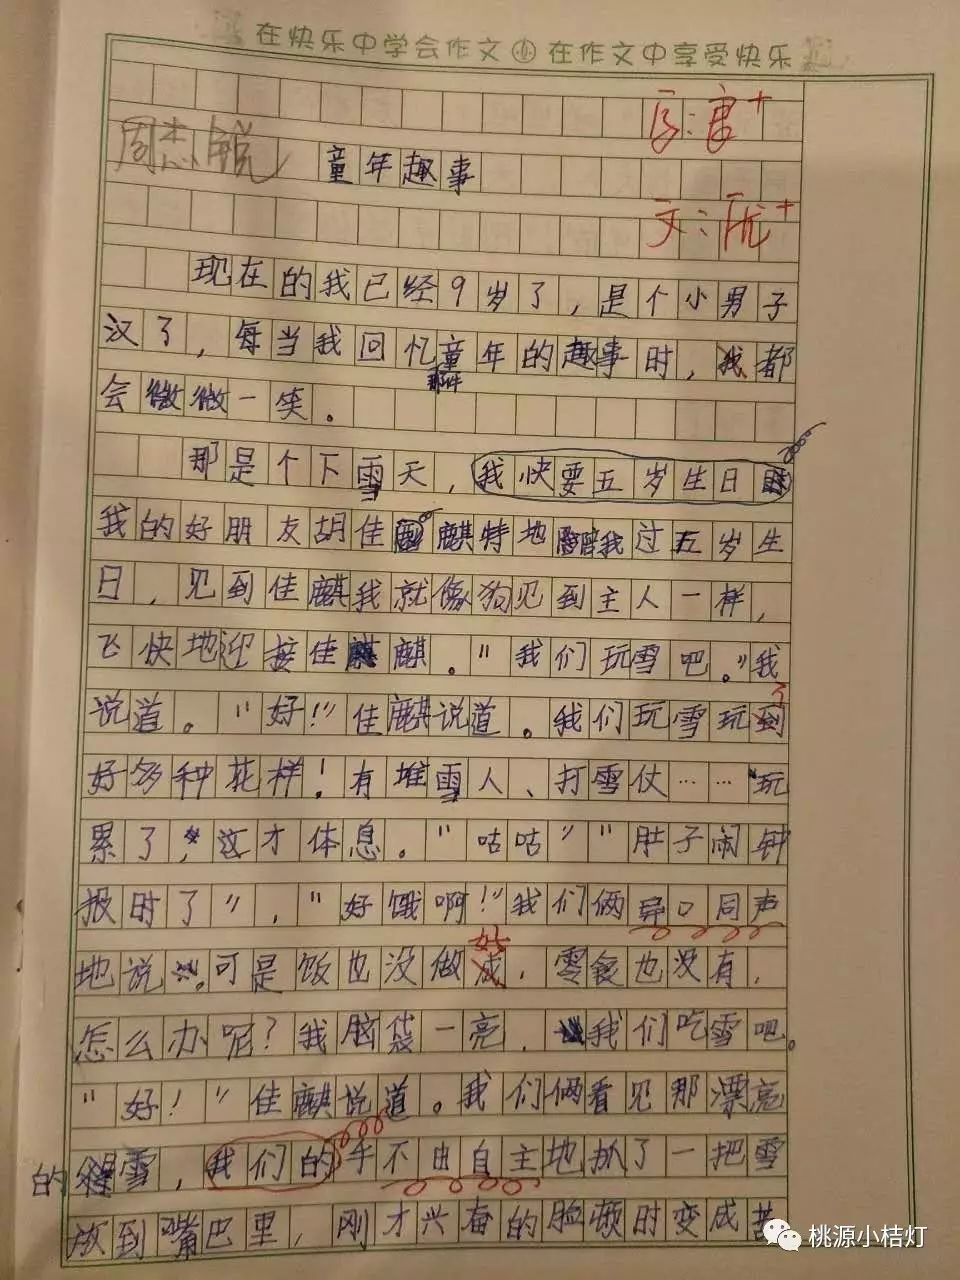 在快乐中学会作文 小 在作文中享受快乐
童年趣事
文:优+
现在的我已经9岁了,是个小男子
汉了,每当我回忆童年的趣事时,我都
那件
会微微一笑。
那是个下雪天,我快要五岁生日
我的好朋友胡佳麒特地陪我过五岁生
日,见到佳麒我就像狗见到主人一样,
飞快地迎接佳麒。"我们玩雪吧。"我
说道。"好!"佳麒说道。我们玩雪玩了
好多种花样!有堆雪人、打雪仗……玩
累了,这才体息。"咕咕""肚子闹钟
报时了",“好饿啊!"我们俩异口同声
地说。可是饭也没做好,零食也没有,
怎么办呢?我脑袋一亮,我们吃雪吧。
"好!"佳麒说道。我们俩看见那漂亮
的雪,我们的手不由自主地抓了一把雪
放到嘴巴里,刚才兴奋的脸顿时变成苦
桃源小桔灯